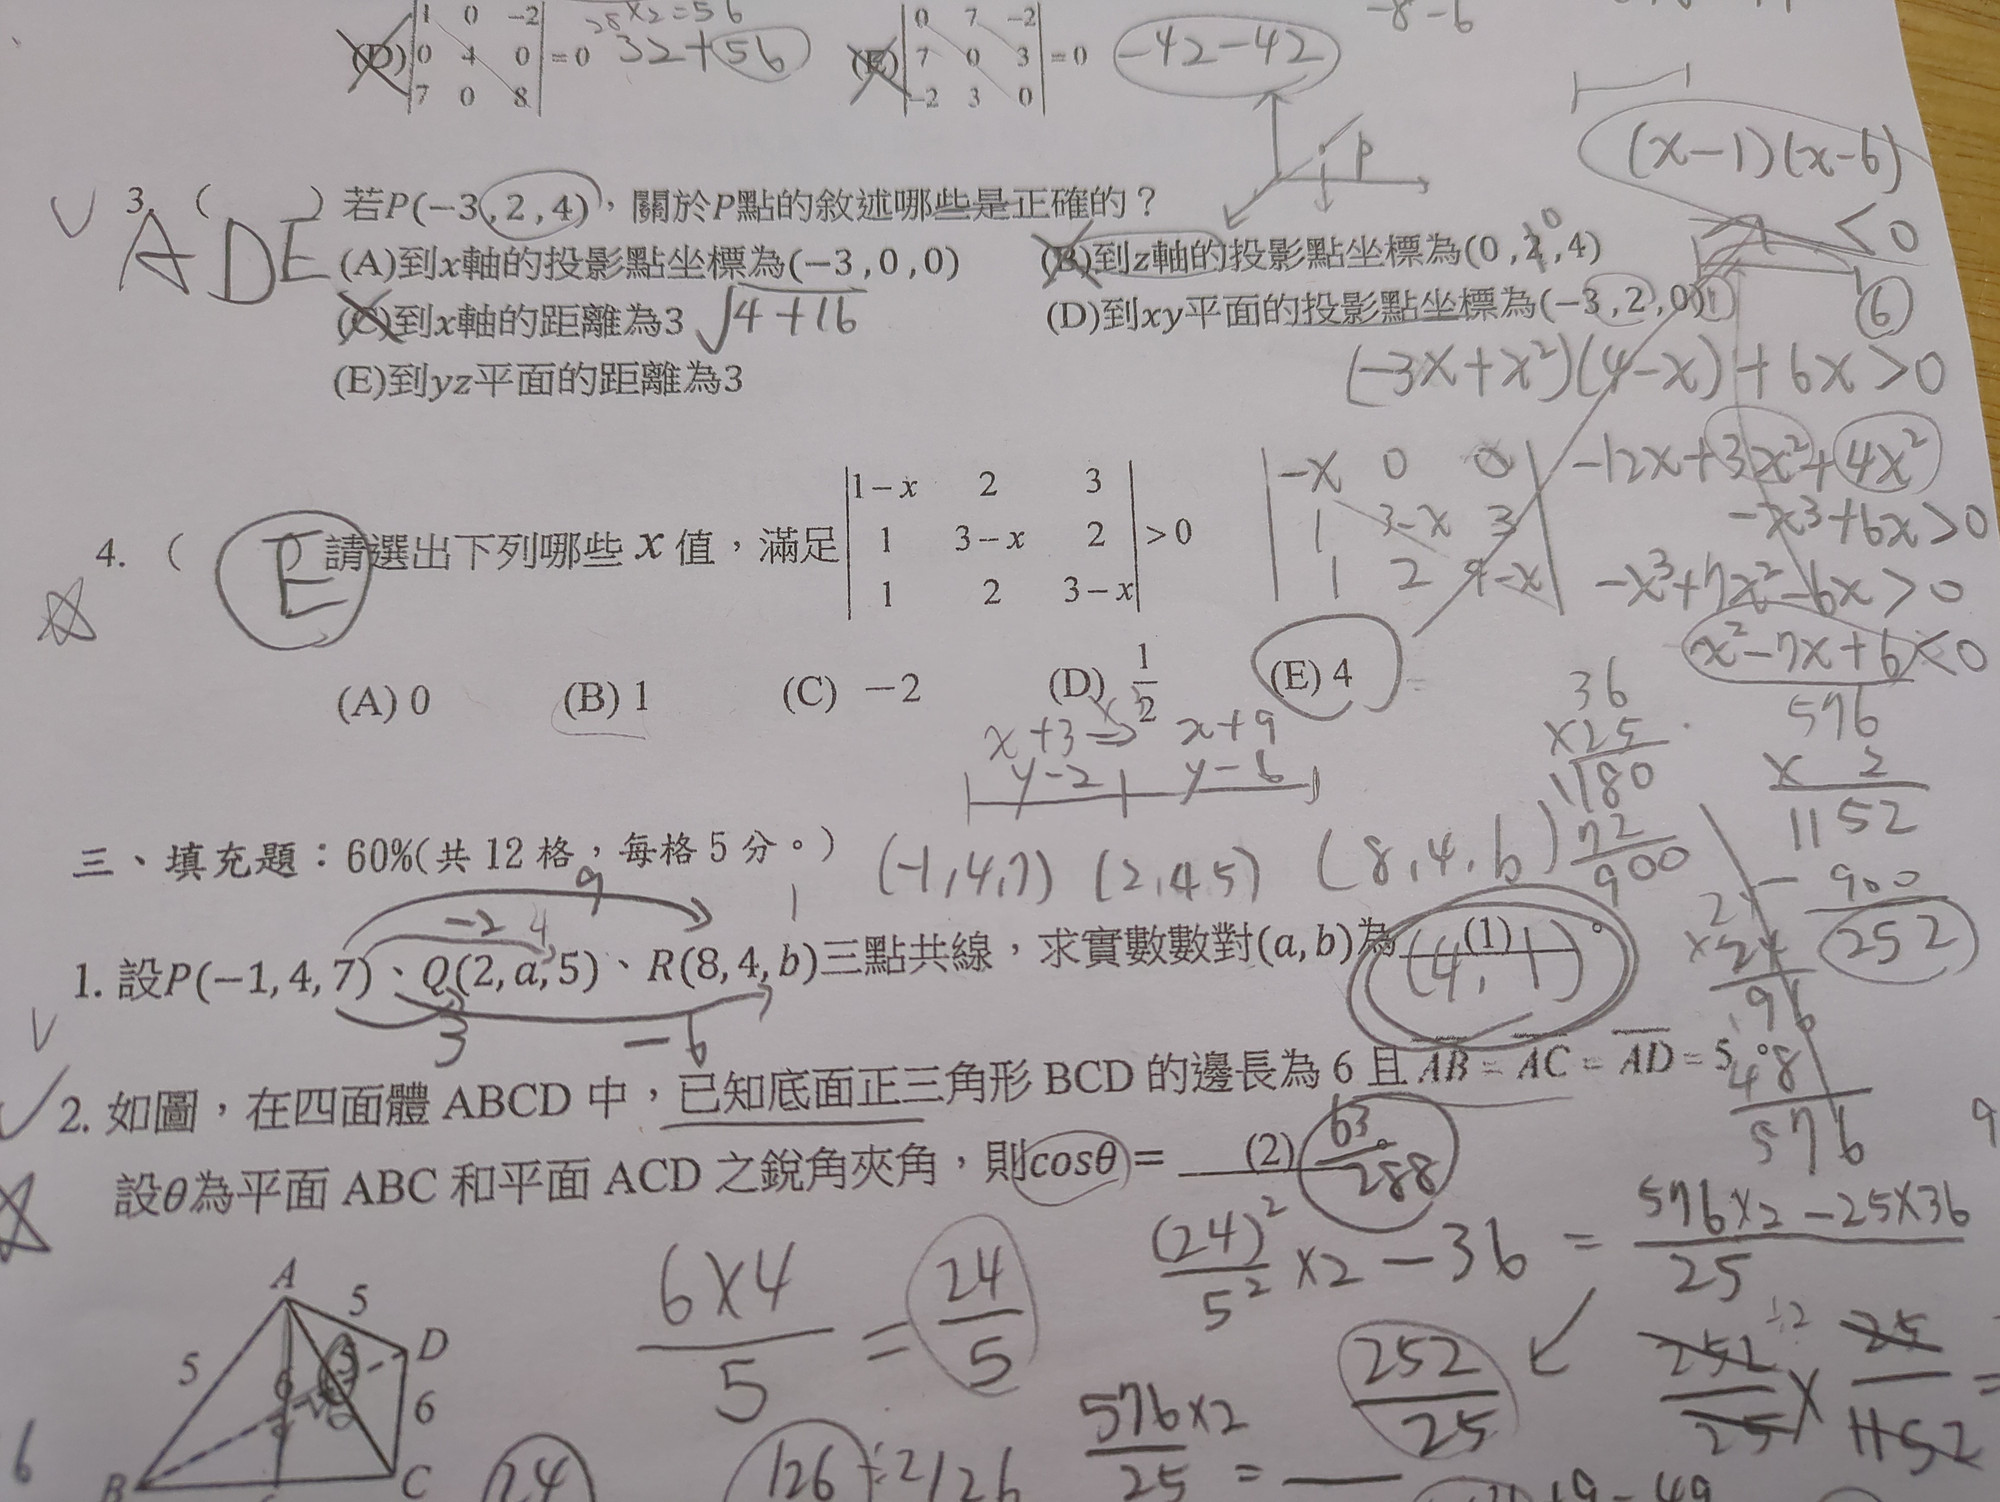 28×2=56
-8-6
(D) |1 0 -2| |0 4 0| |7 0 8| =0 32+56 (E) |0 7 -2| |7 0 3| |-2 3 0| =0 -42-42
p
(x-1)(x-6)
<0
3. ( ) 若P(-3,2,4)，關於P點的敘述哪些是正確的？
ADE
(A)到x軸的投影點坐標為(-3,0,0) (B)到z軸的投影點坐標為(0,2,4) 0
(C)到x軸的距離為3 √4+16 (D)到xy平面的投影點坐標為(-3,2,0) 1 6
(E)到yz平面的距離為3
(-3x+x²)(4-x)+6x>0
-12x+3x²+4x²
-x³+6x>0
-x³+7x²-6x>0
x²-7x+6<0
4. ( ) 請選出下列哪些 x 值，滿足 |1-x 2 3| |1 3-x 2| |1 2 3-x| >0
E
|-x 0 x| |1 3-x 3| |1 2 4-x|
(A) 0 (B) 1 (C) -2 (D) 1/2 (E) 4
x+3 → x+9
y-2 y-6
36
×25
180
72
900
576
× 2
1152
- 900
252
三、填充題：60%(共 12 格，每格 5 分。)
(-1,4,7) (2,4,5) (8,4,6)
9
-2 4 1
1. 設P(-1,4,7)、Q(2,a,5)、R(8,4,b)三點共線，求實數數對(a,b)為 (1) 。
(4,1)
3 -6
24
×24
96
48
576
2. 如圖，在四面體 ABCD 中，已知底面正三角形 BCD 的邊長為 6 且 AB = AC = AD = 5。
設θ為平面 ABC 和平面 ACD 之銳角夾角，則cosθ = (2) 。
63/288
6×4/5 = 24/5
(24)²/5² ×2 - 36 = 576×2-25×36/25
252/25
252/25 × 25/1152 =
÷2
576×2/25 =
A
5
D
5
6
B
C
6
24
126 ÷2/126
9
+9-49